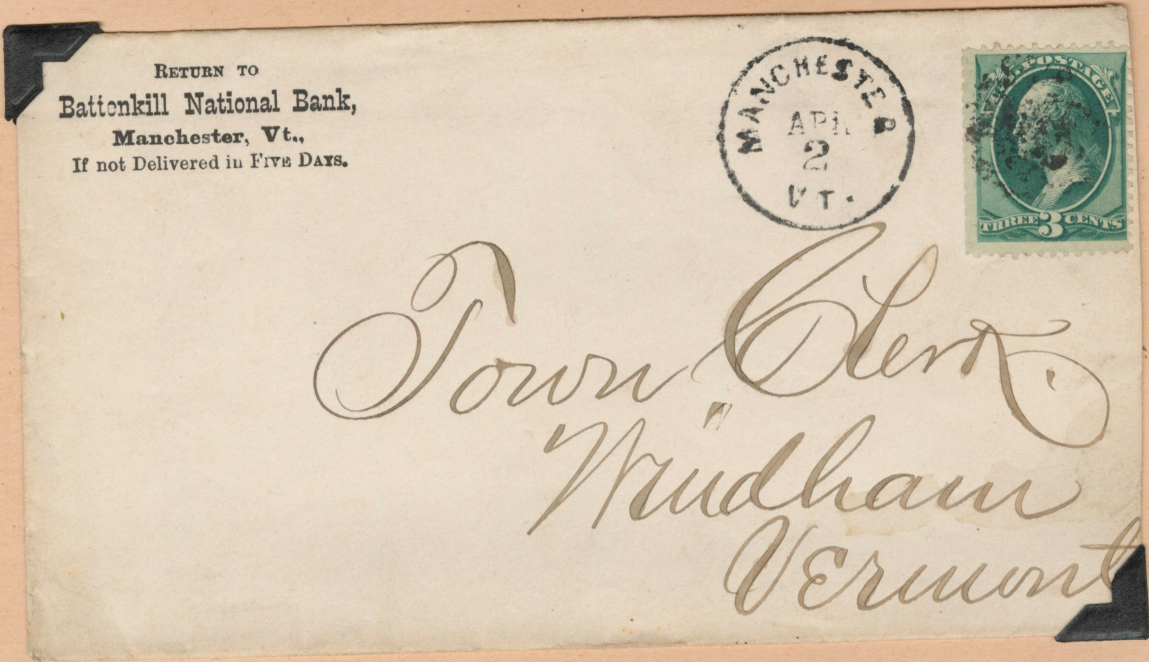 RETURN TO
Battenkill National Bank,
Manchester, Vt.,
If not Delivered in FIVE DAYS.
MANCHESTER
APR
2
VT.
POSTAGE
THREE 3 CENTS
Town Clerk.
Windham
Vermont